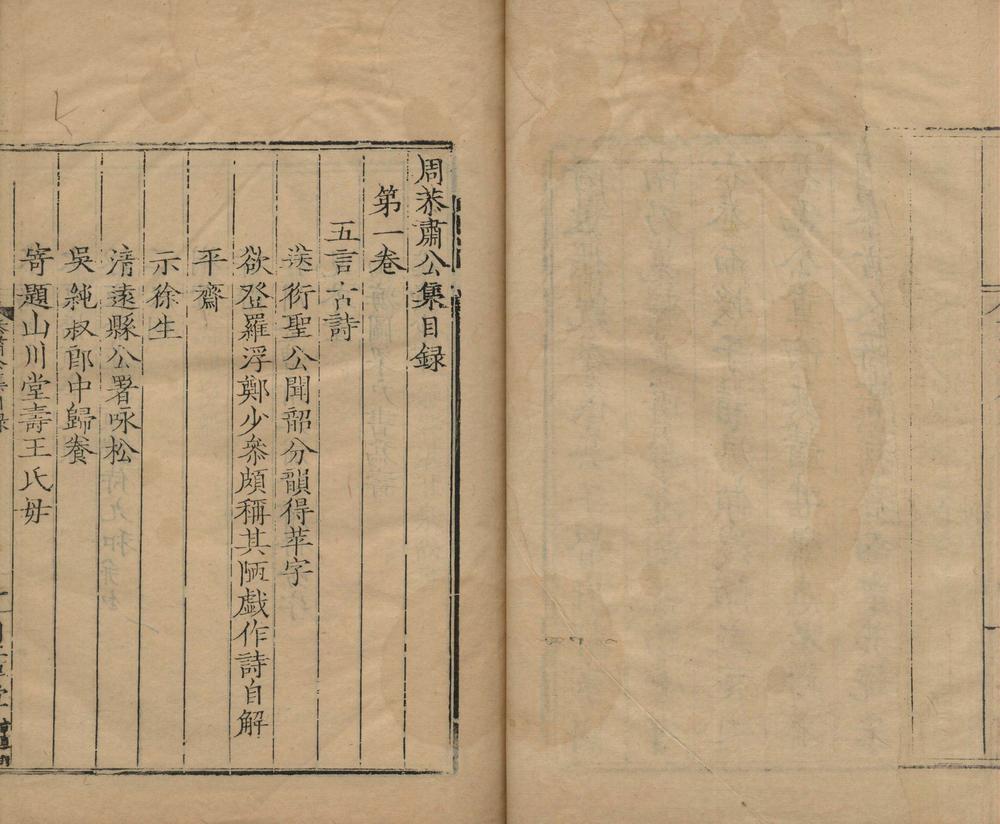 周恭肅公集目録
第一卷
五言古詩
送衍聖公聞韶分韻得苹字
欲登羅浮鄭少叅頗稱其陋戯作詩自解
平齋
示徐生
清遠縣公署咏松
吳純叔郎中歸養
寄題山川堂壽王氏母